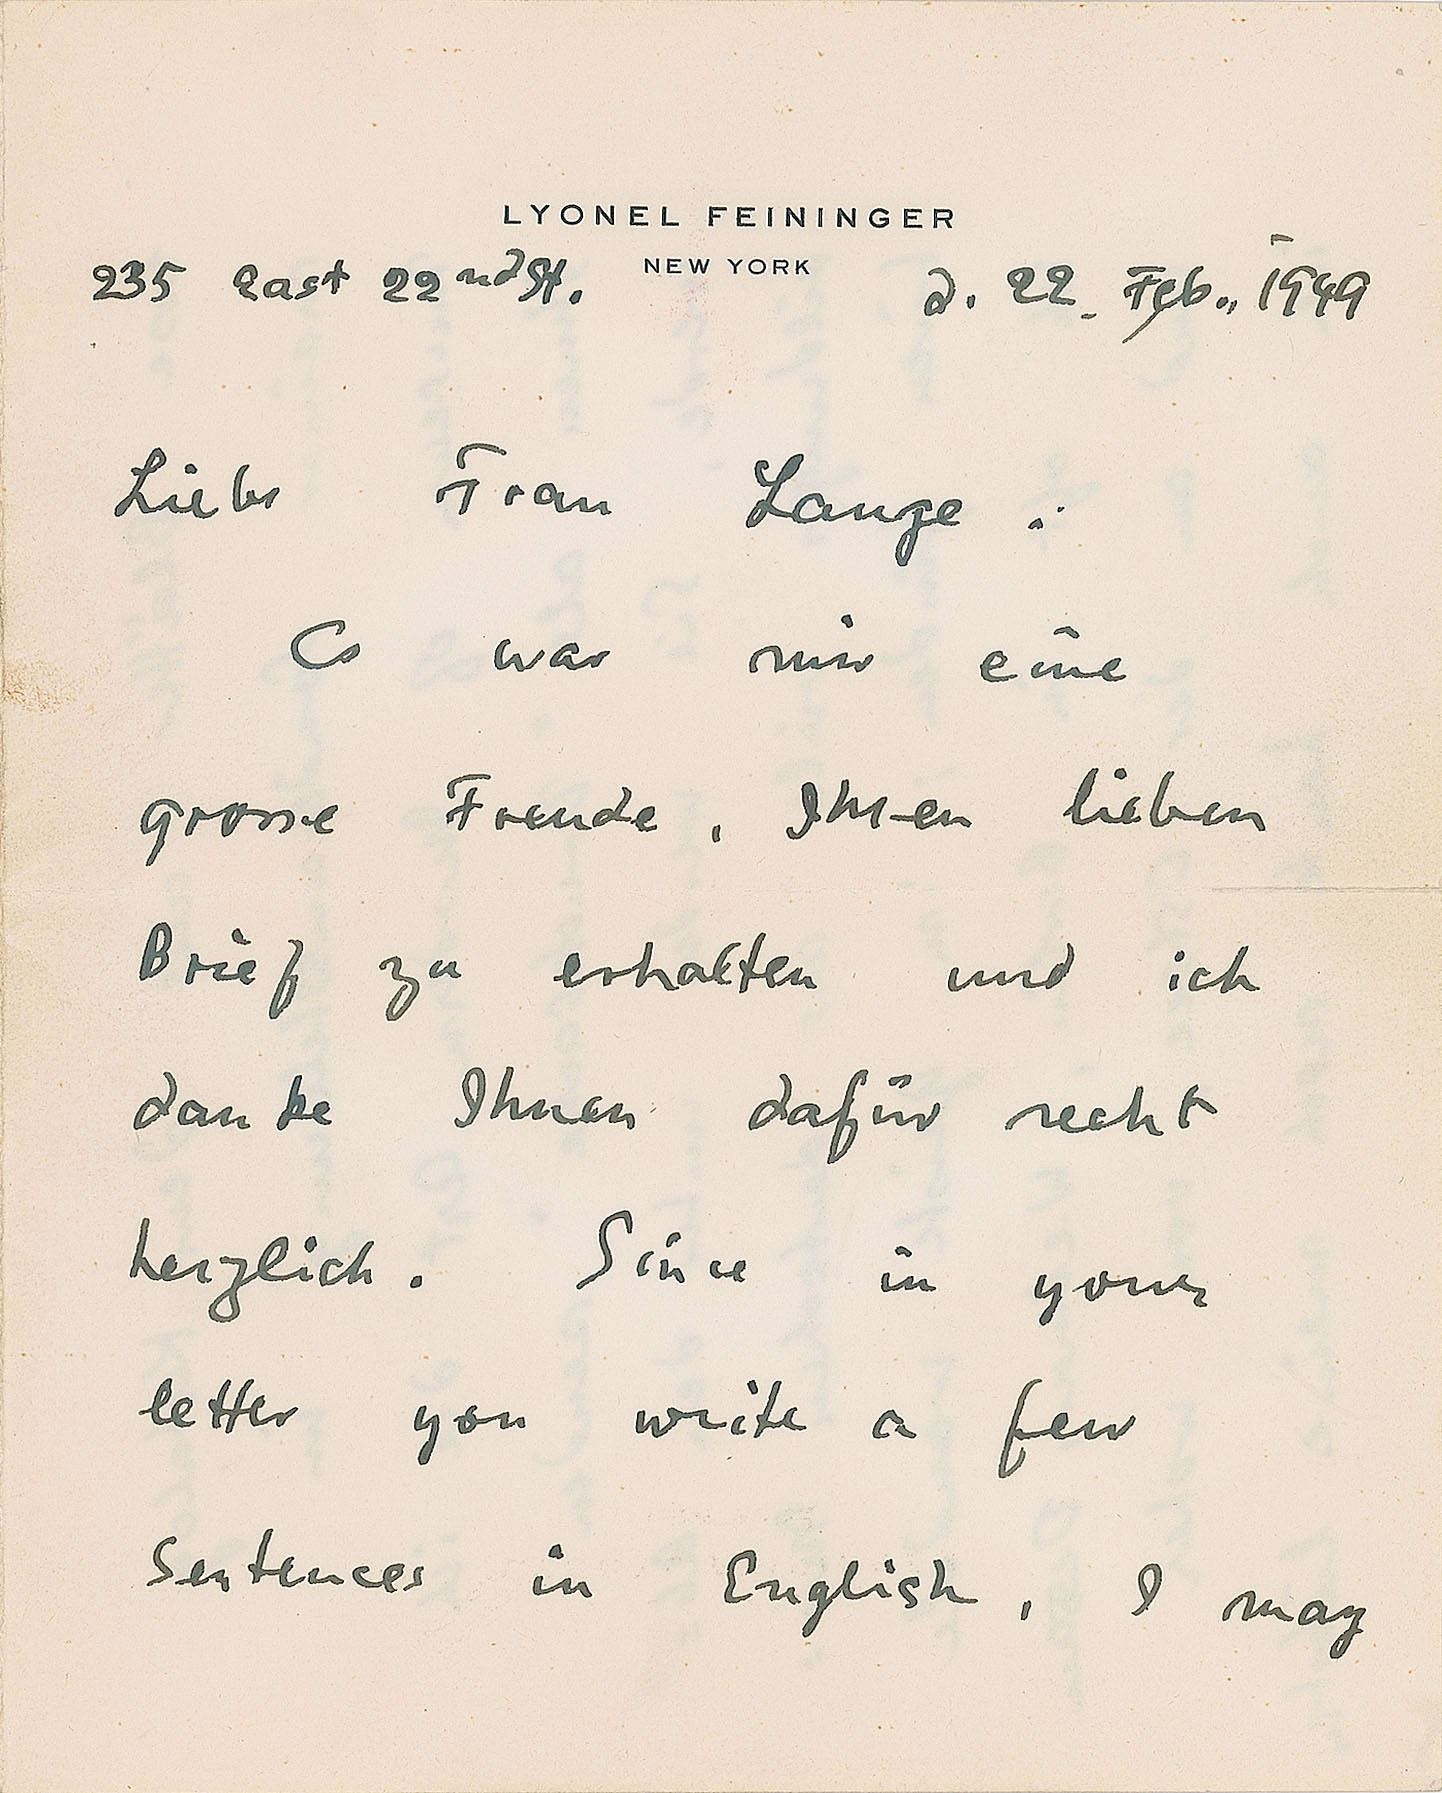 LYONEL FEININGER
NEW YORK
235 East 22nd St. d. 22. Feb., 1949
Liebe Frau Lange :
Es war mir eine
grosse Freude, Ihren lieben
Brief zu erhalten und ich
danke Ihnen dafür recht
herzlich. Since in your
letter you write a few
sentences in English, I may